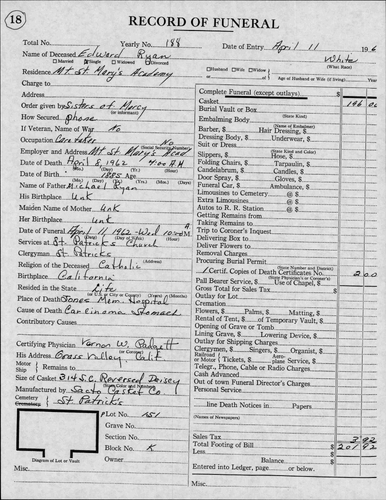 18
RECORD OF FUNERAL
Total No. Yearly No. 188 Date of Entry April 11 196
Name of Deceased Edward Ryan White
Married Single Widowed Divorced (What Race)
Residence Mt St Mary's Academy Husband Wife Widow
or of Age of Husband or Wife (if living) Years
Charge to
Address
Order given by Sisters of Mercy
How Secured phone
If Veteran, Name of War no
Occupation Caretaker No
(Social Security Number)
Employer and Address Mt St Mary's Acad
Date of Death April 8, 1962 7:00 A M
Date of Birth 1885
Name of Father Michael Ryan
His Birthplace Unk
Maiden Name of Mother Unk
Her Birthplace Unk
Date of Funeral April 11, 1962 - Wed 10:00 A M
Services at St Patricks Church
Clergyman St Patricks
Religion of the Deceased Catholic
Birthplace California
Resided in the State Life
Place of Death Jones Mem. Hospital
Cause of Death Carcinoma Stomach
Contributory Causes
Certifying Physician Vernon W. Padgett
His Address Grass Valley, Calif
Motor
Ship Remains to
Size of Casket 3145.C. Reversed Doisey
Manufactured by Sacto Casket Co
Cemetery St Patricks
Lot No. 151
Grave No.
Section No.
Block No. K
Owner
Diagram of Lot or Vault
Complete Funeral (except outlays) $
Casket 196 00
Burial Vault or Box
(State Kind)
Embalming Body
(Name of Embalmer)
Barber, $ Hair Dressing, $
Dressing Body, $ Underwear, $
Suit or Dress
(State Kind and Color)
Slippers, $ Hose, $
Folding Chairs, $ Tarpaulin, $
Candelabrum, $ Candles, $
Door Spray, $ Gloves, $
Funeral Car, $ Ambulance, $
Limousines to Cemetery @ $
Extra Limousines @ $
Autos to R. R. Station @ $
Getting Remains from
Taking Remains to
Trip to Coroner's Inquest
Delivering Box to
Deliver Flowers to
Removal Charges
Procuring Burial Permit
(State Number and District)
1 Certif. Copies of Death Certificates No. 2 00
(State Physician's or Coroner's)
Pall Bearer Service, $ Use of Chapel, $
Gross Total for Sales Tax $
Outlay for Lot
Cremation
Flowers, $ Palms, $ Matting, $
Rental of Tent, $ of Temporary Vault, $
Opening of Grave or Tomb
Lining Grave, $ Lowering Device, $
Outlay for Shipping Charges
Clergymen, $ Singers, $ Organist, $
Telep., Phone, Cable or Radio Charges
Cash Advanced
Out of town Funeral Director's Charges
Personal Service
line Death Notices in Papers
(Names of Newspapers)
Sales Tax 3 92
Total Footing of Bill $ 201 92
Less
Balance $
Entered into Ledger, page or below.